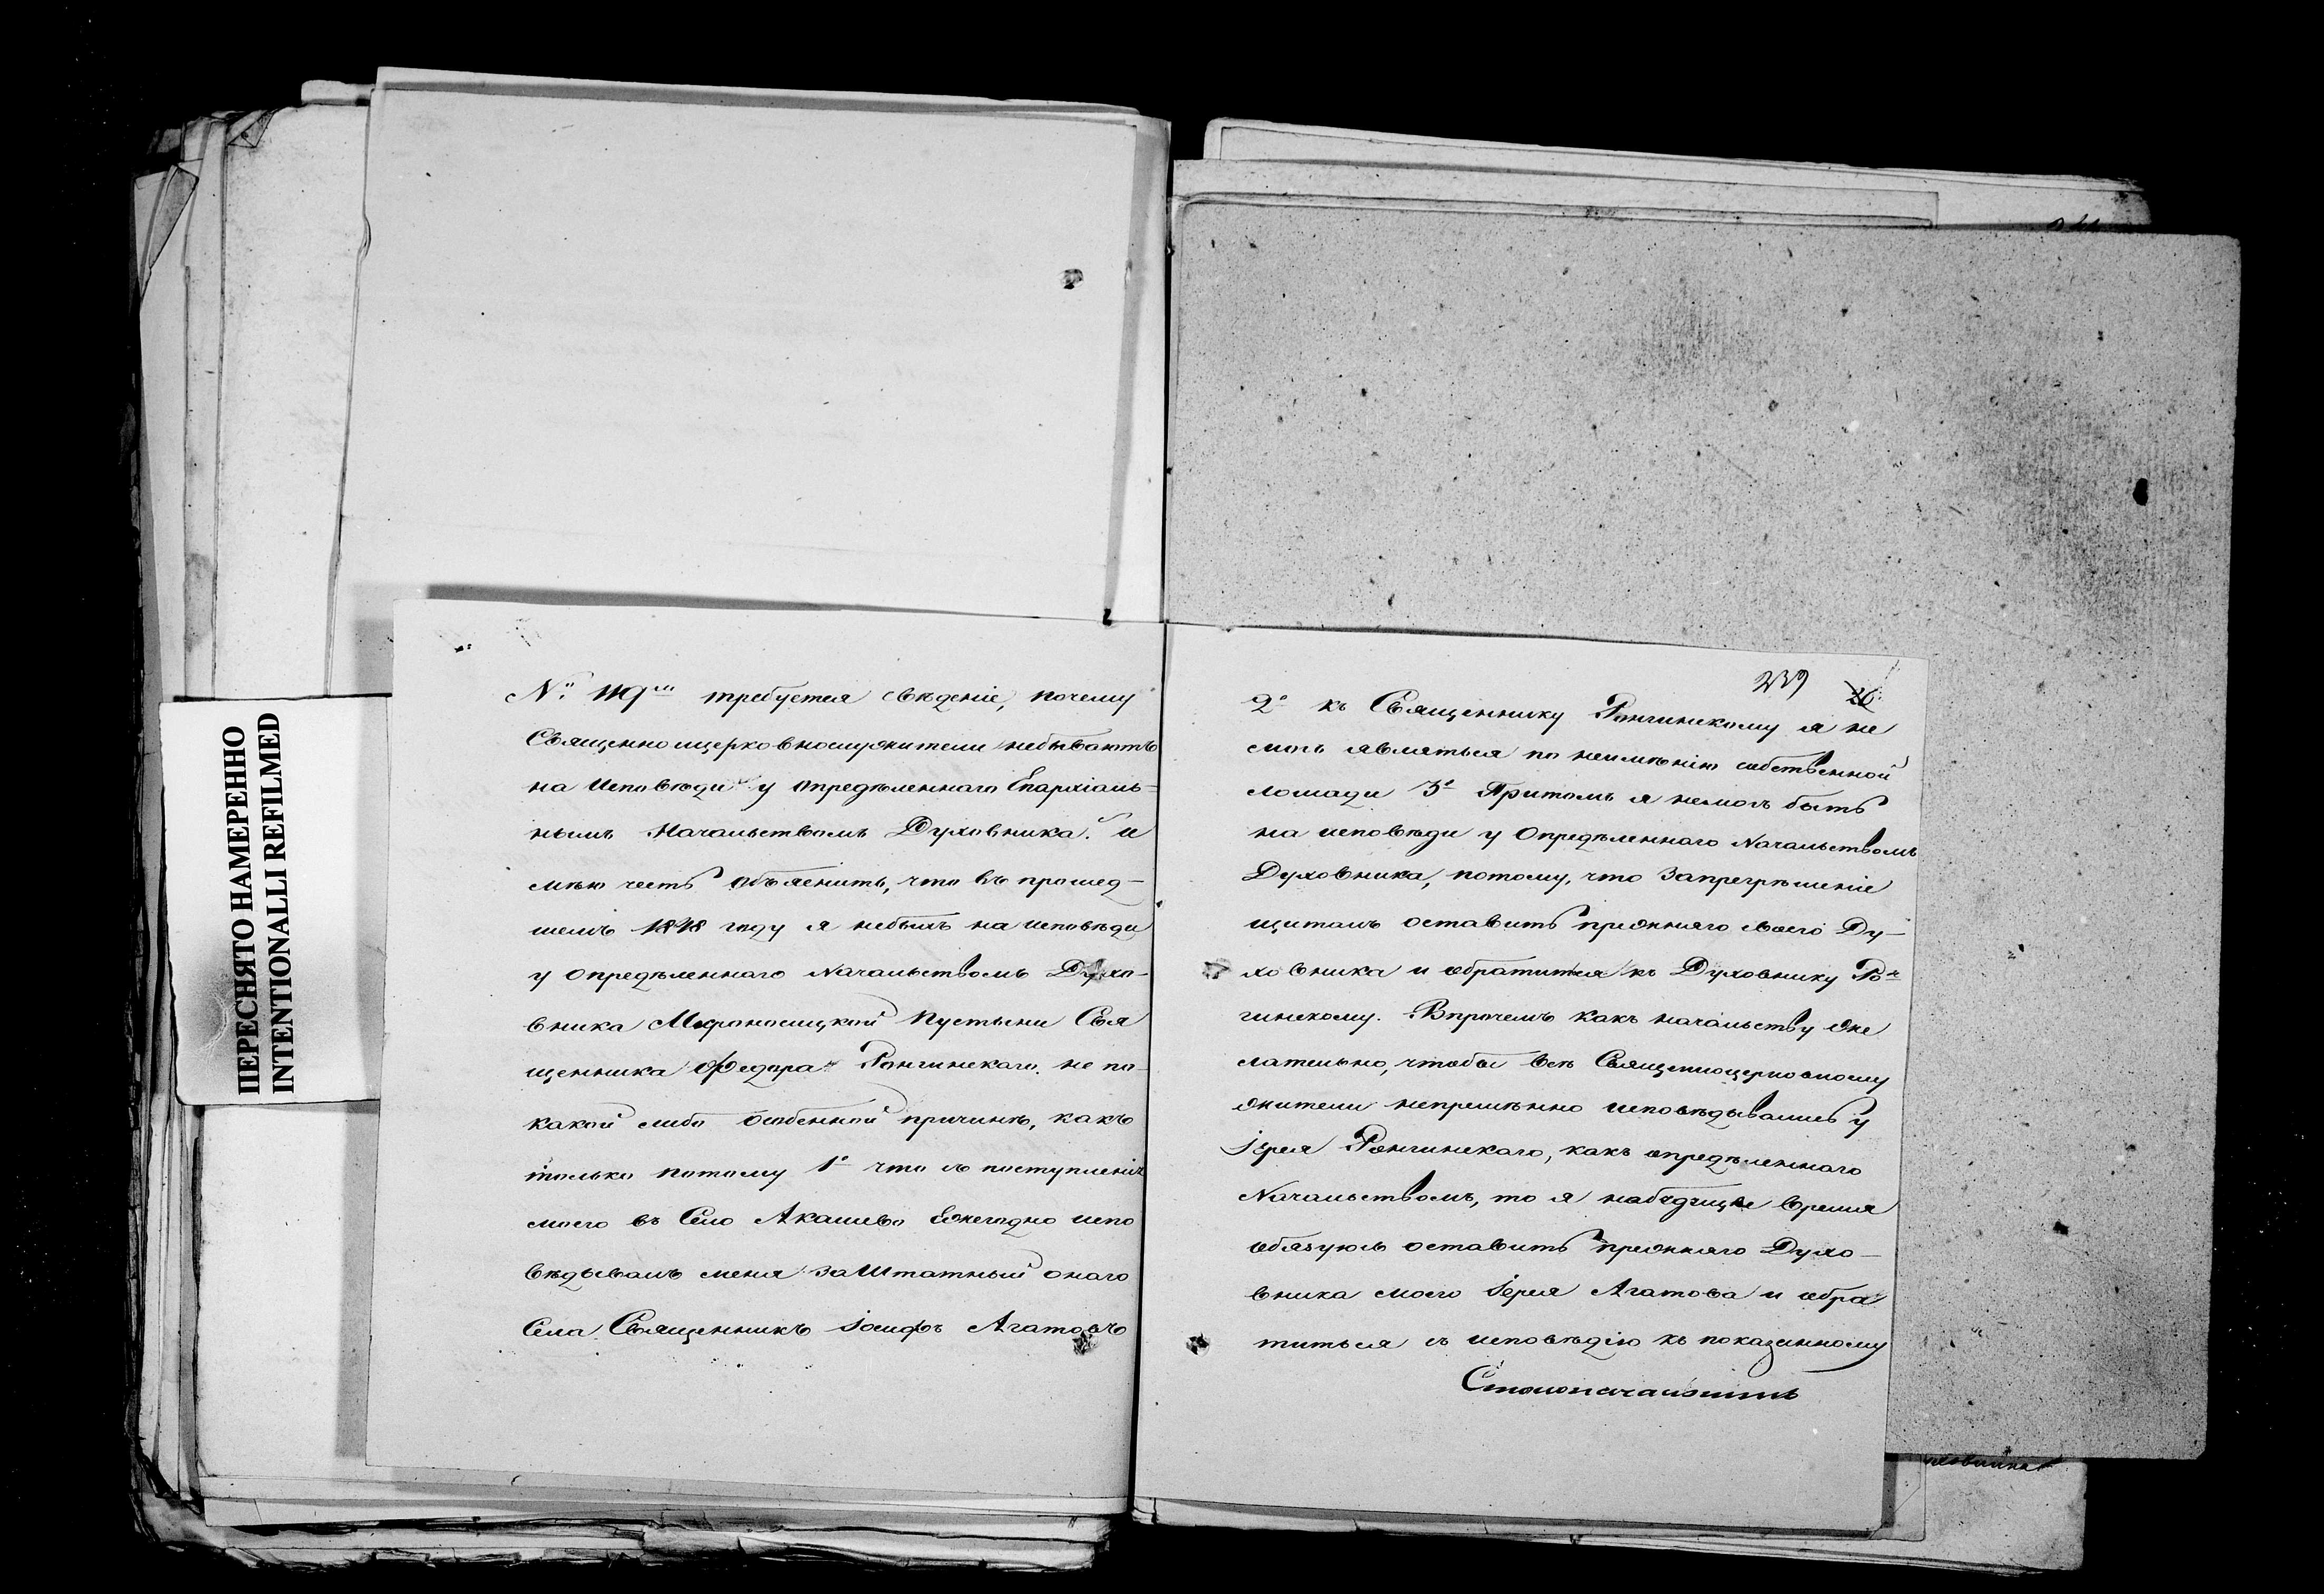 ПЕРЕСНЯТО НАМЕРЕННО
INTENTIONALLI REFILMED
№ 119 требуется свѣденіе, почему
Священноицерковнослужители небываютъ
на Исповѣди у опредѣленнаго Епархіаль=
нымъ Начальствомъ Духовника. и
мѣю честь объяснить, что въ прошед-
шемъ 1848 году я небылъ на исповѣди
у опредѣленнаго Начальствомъ Духо-
вника Мироносицкой Пустыни Свя
щенника Федора Ронгинскаго. не по-
какой либо особенной причинѣ, какъ
только потому 1е что съ поступленія
моего въ Село Акашево Ежегодно испо
вѣдывалъ меня заштатный онаго
Села Священникъ Іосифъ Агатовъ
239 26
2е къ Священнику Ронгинскому я не
могъ являться по неимѣнію собственной
лошади 3е Притомъ я немогъ быть
на исповѣди у Опредѣленнаго Начальствомъ
Духовника, потому, что Запрегрѣшеніе
щиталъ оставить прежняго своего Ду-
ховника и обратится къ Духовнику Рон=
гинскому. Впрочемъ какъ начальству же
лательно, чтобы всѣ Священноцерковнослу
жители непремѣнно исповѣдывались у
Іерея Ронгинскаго, какъ опредѣленнаго
Начальствомъ, то я набудущее время
обязуюсь оставить прежняго Духо-
вника моего Іерея Агатова и обра
титься съ исповѣдію къ показанному
Столоначальникъ